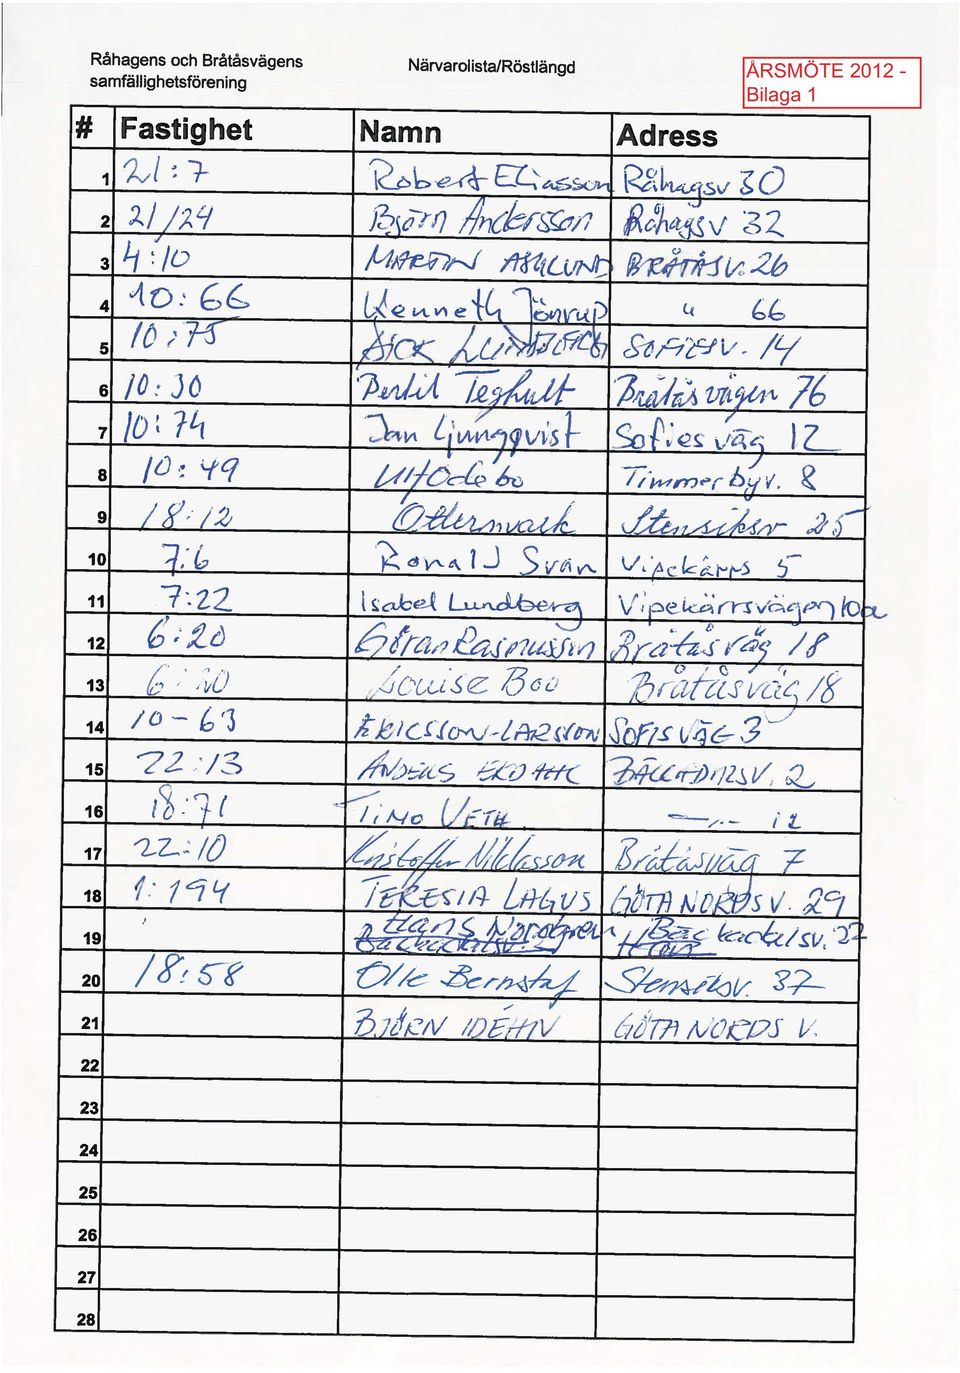 Råhagens och Bråtåsvägens Närvarolista/Röstlängd
samfällighetsförening
ÅRSMÖTE 2012 -
Bilaga 1
# Fastighet Namn Adress
1 21:7 Robert Eliasson Råhagsv 30
2 21/24 Björn Andersson Råhagsv 32
3 4:10 MARTIN ASKLUND BRÅTÅSV. 26
4 10:66 Kenneth Jönrup " 66
5 10:75 LUNDBERG SOFIESV. 14
6 10:30 Bertil Teghult Bråtåsvägen 76
7 10:74 Jan Ljungqvist Sofies väg 12
8 10:49 Ulf Odebo Timmerbyv. 8
9 18:12 Stensiksv 25
10 7:6 Ronald Svan Vipekärrs 5
11 7:22 Isabel Lundberg Vipekärrsvägen 10a
12 6:20 Göran Rasmusson Bråtås väg 18
13 6:20 Louise Boo Bråtåsväg 18
14 10-63 ERICSSON-LARSSON SOFIS VÄG 3
15 22:13 ANDERS EKDAHL 2
16 18:71 TIMO VETH - " - 12
17 22:10 Kristoffer Niklasson Bråtåsväg 7
18 1:194 TERESIA LAGUS GÖTA NORDS V. 29
19 Hans Nordgren
20 18:58 Olle Stensiksv. 37
21 BJÖRN IDEHN GÖTA NORDS V.
22
23
24
25
26
27
28